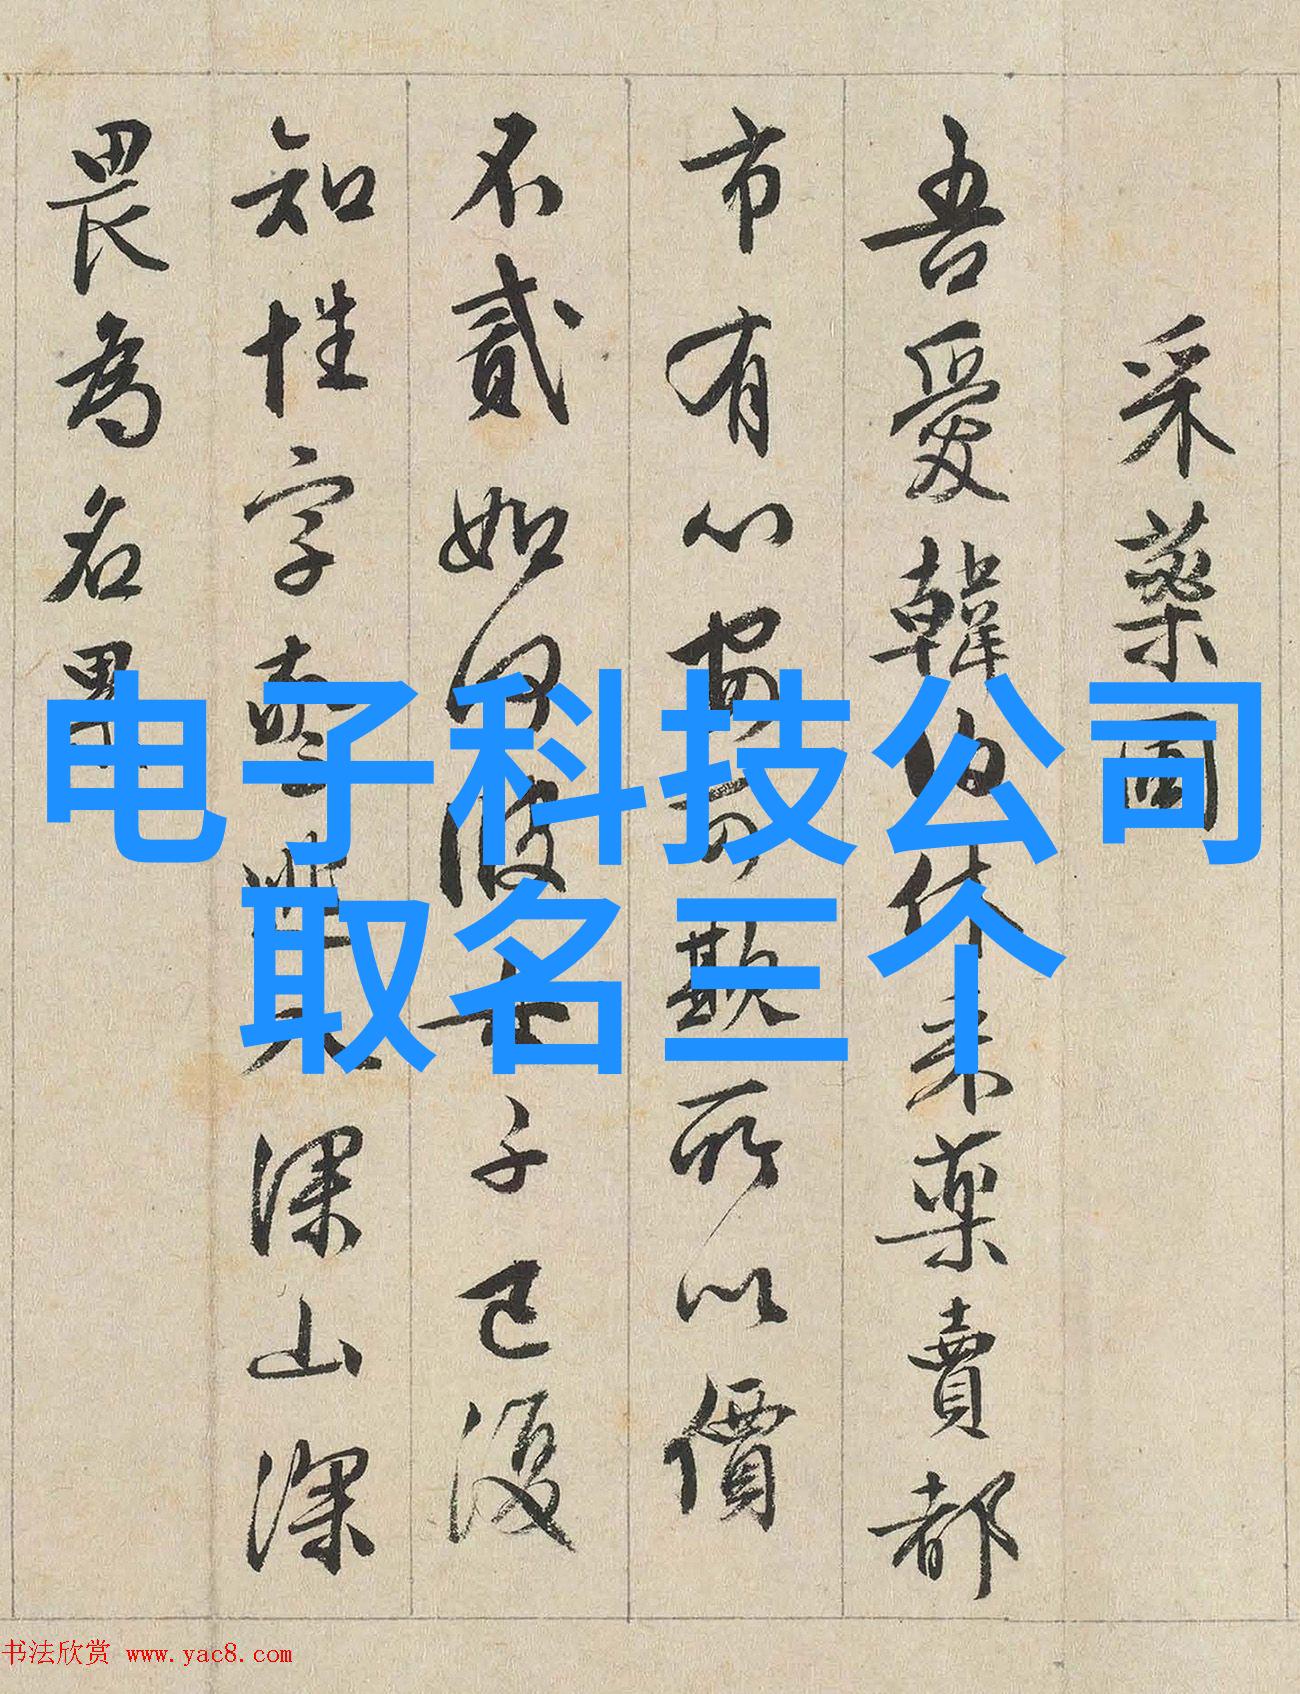 采藥圖
吾愛韓伯休采藥賣都
市有心寧可欺所以價
不貳如何彼女子已復
知姓字驚逃入深山深
畏為名累
电子科技公司
取名三个
书法欣赏 www.yac8.com